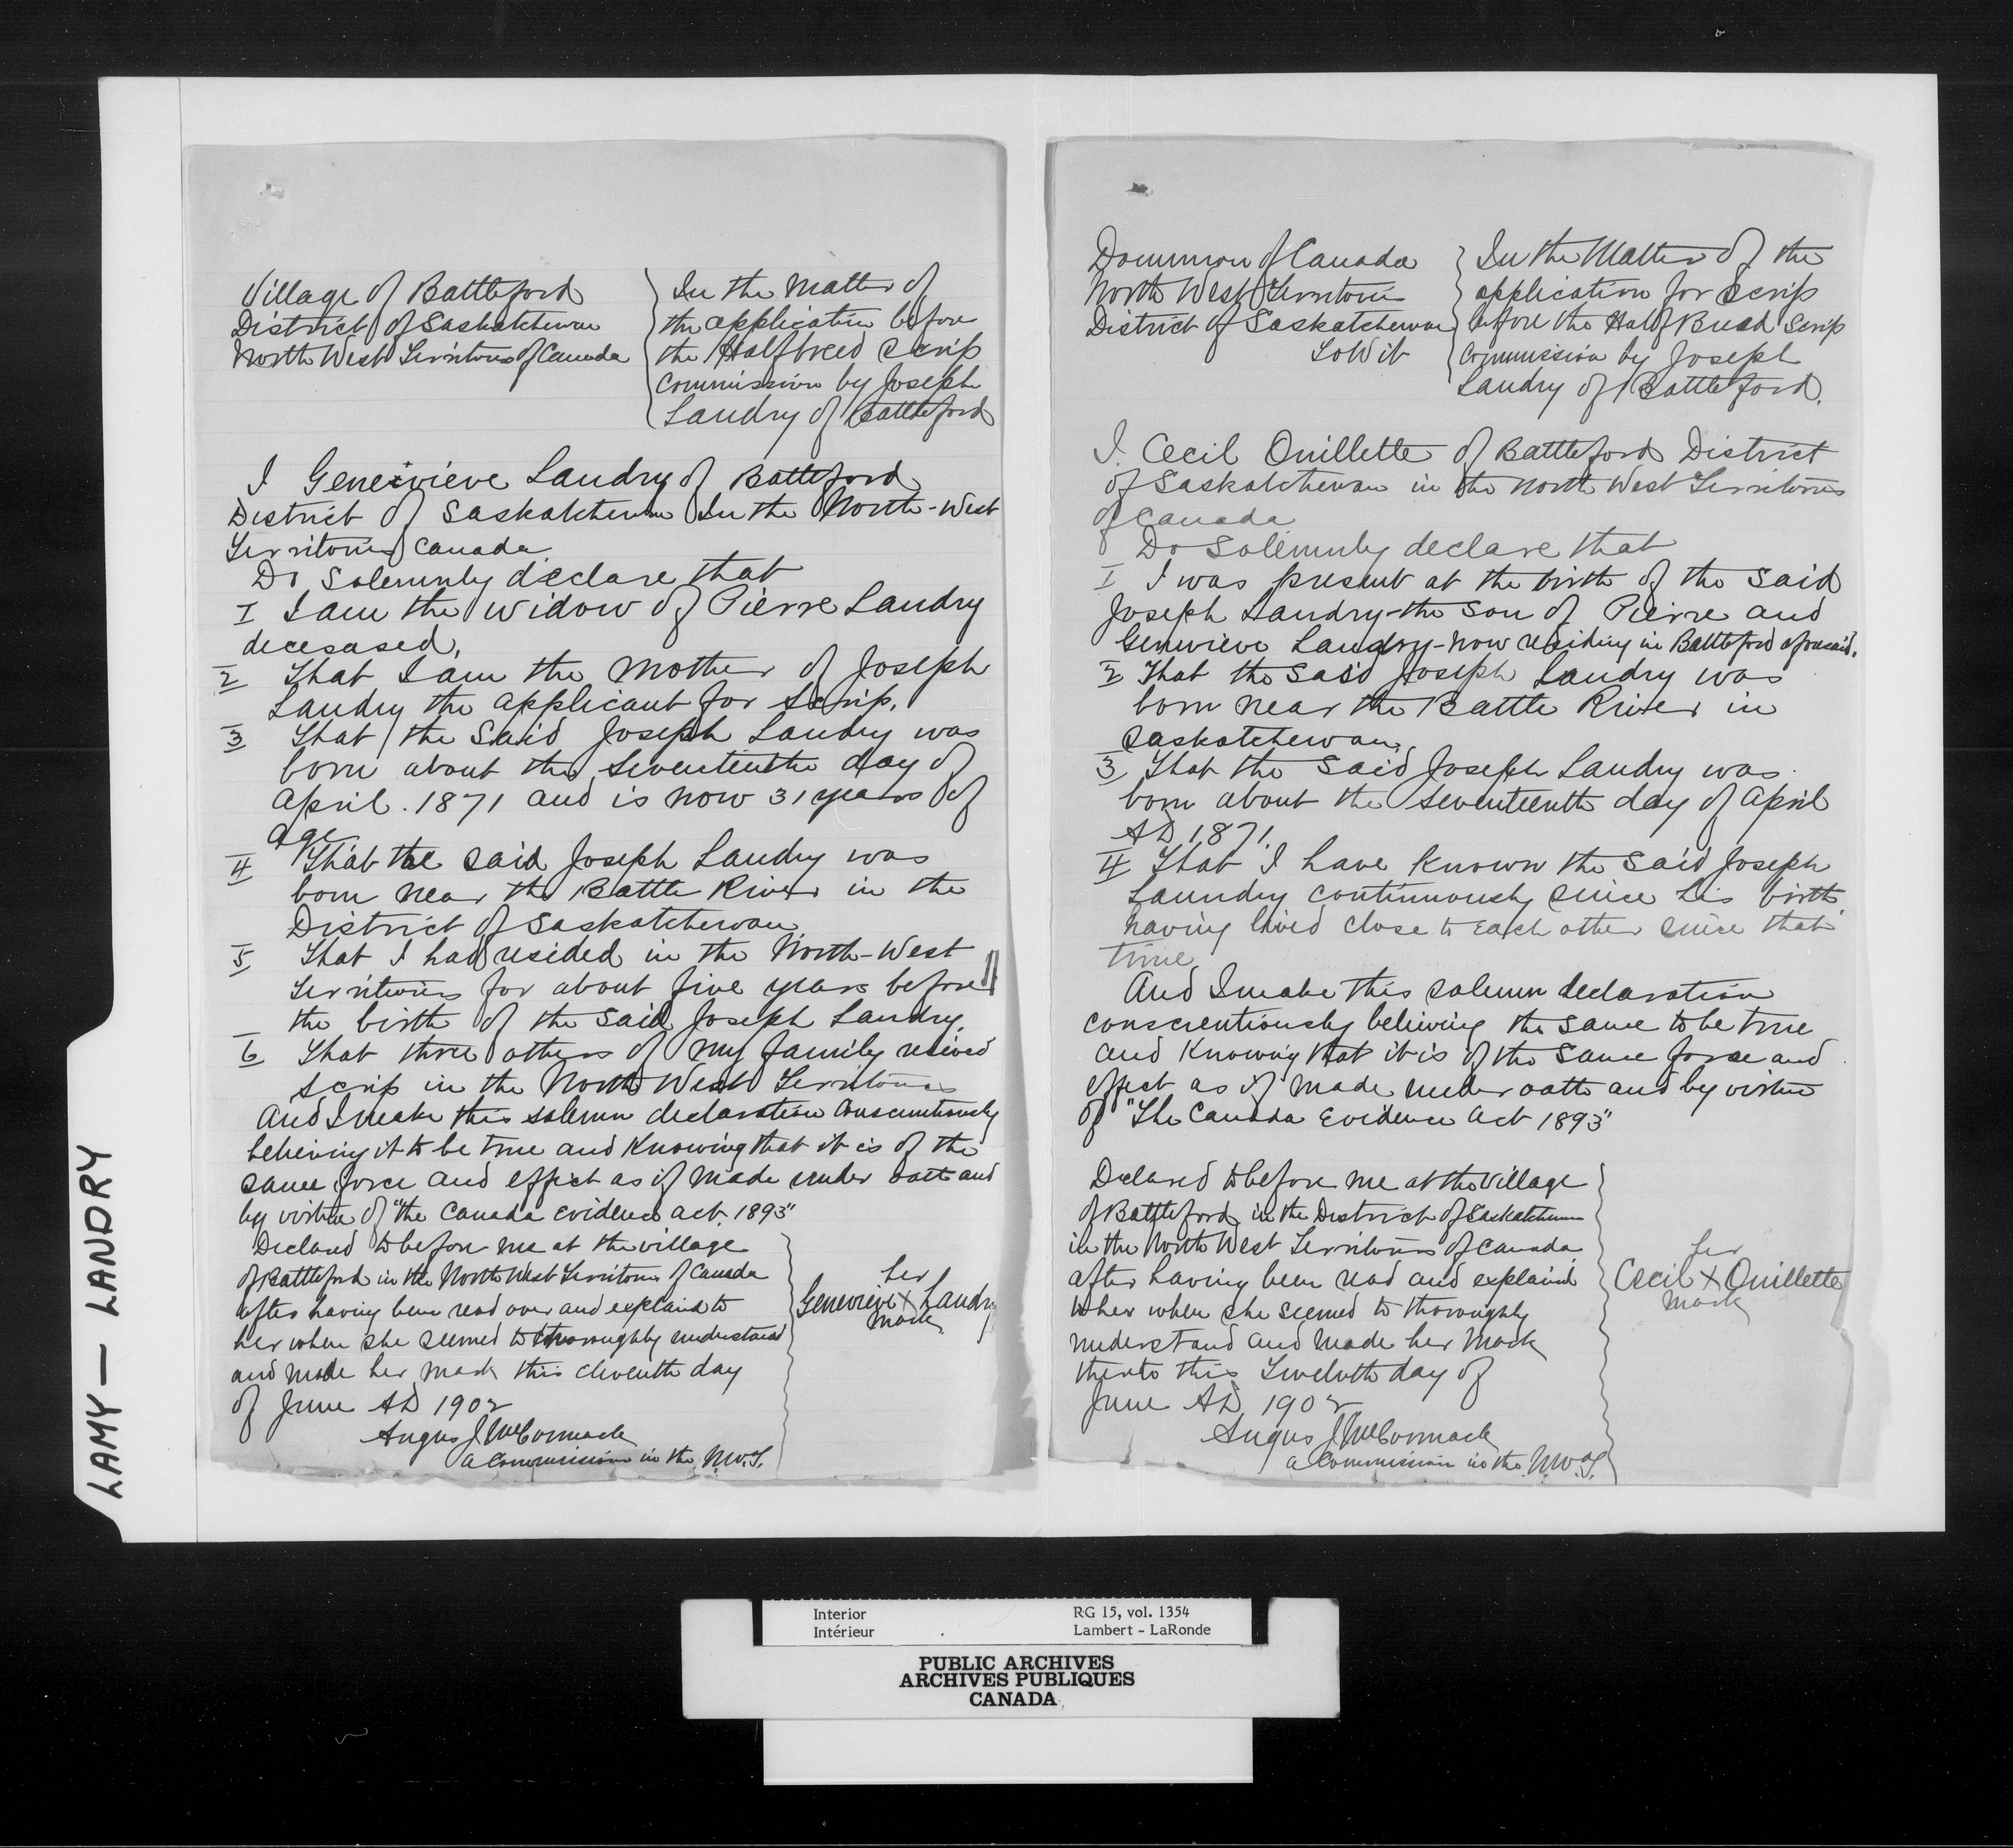 Village of Battleford
District of Saskatchewan
North West Territories of Canada
In the Matter of
the application before
the Halfbreed Scrip
Commission by Joseph
Landry of Battleford
I Genevieve Landry of Battleford
District of Saskatchewan In the North-West
Territories Canada.
Do Solemnly declare that
I I am the widow of Pierre Landry
decesased,
2 That I am the Mother of Joseph
Landry the applicant for Scrip.
3 That the Said Joseph Landry was
born about the Seventeenth day of
April. 1871 and is now 31 years of
age
4 That the said Joseph Landry was
born near the Battle River in the
District of Saskatchewan
5 That I had resided in the North-West
Territories for about five years before
the birth of the said Joseph Landry.
6 That three others of my family recived
scrip in the North West Territories
And I make this solemn declaration Conscientiously
believing it to be true and Knowing that it is of the
same force and effect as if made under oath and
by virtue of "the Canada Evidence act. 1893"
Declared to before me at the village
of Battleford in the North West Territories of Canada
after having been read over and explaind to
her when she seemed to thoroughly understand
and made her mark this eleventh day
of June AD 1902
Angus J McCormack
a Commission in the N.W.T.
her
Genevieve X Landry
Mark
Dominion of Canada
North West Territories
District of Saskatchewan
To Wit
In the Matter of the
application for Scrip
before the Half Breed Scrip
Commission by Joseph
Landry of Battleford.
I. Cecil Ouillette of Battleford District
of Saskatchewan in the North West Territories
of Canada
Do Solemnly declare that
I I was present at the birth of the said
Joseph Landry-the Son of Pierre and
Genevieve Landry-now residing in Battleford aforesaid.
2 That the said Joseph Landry was
born near the Battle River in
Saskatchewan.
3 That the said Joseph Landry was
born about the Seventeenth day of April
AD 1871.
4 That I have known the said Joseph
Laundry continuously since his birth
having lived close to each other since that
time
And I make this solemn declaration
conscientiously believing the same to be true
and Knowing that it is of the same force and
effect as if made under oath and by virtue
of "The Canada Evidence Act 1893"
Declared to before me at the village
of Battleford in the District of Saskatchewan
in the North West Territories of Canada
after having been read and explained
to her when she seemed to thoroughly
understand and made her Mark
thereto this Twelvth day of
June AD 1902
Angus J McCormack
a Commission in the N.W.T.
her
Cecil X Ouillette
mark
LAMY — LANDRY
Interior RG 15, vol. 1354
Intérieur Lambert - LaRonde
PUBLIC ARCHIVES
ARCHIVES PUBLIQUES
CANADA